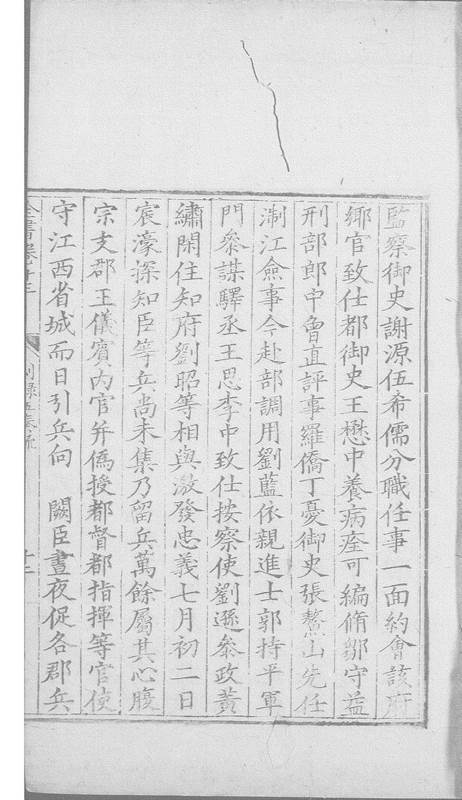 監察御史謝源伍希儒分職任事一面約會該府
鄉官致仕都御史王懋中養病痊可編脩鄒守益
刑部郎中曾直評事羅僑丁憂御史張鰲山先任
淛江僉事今赴部調用劉藍依親進士郭持平軍
門叅謀驛丞王思李中致仕按察使劉遜叅政黃
繡閑住知府劉昭等相與激發忠義七月初二日
宸濠探知臣等兵尚未集乃留兵萬餘屬其心腹
宗支郡王儀賓內官并僞授都督都指揮等官使
守江西省城而日引兵向 闕臣晝夜促各郡兵
全書卷十三 別錄五奏疏